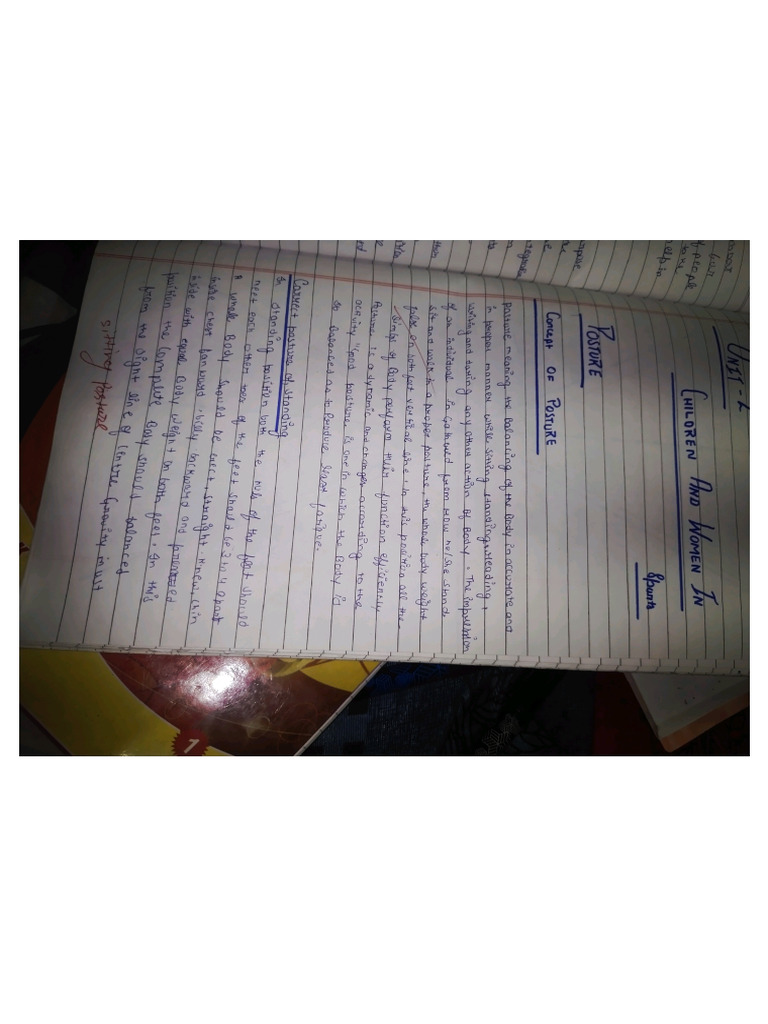 UNIT-2
CHILDREN AND WOMEN IN
Sports
POSTURE
CONCEPT OF POSTURE
posture meaning the balancing of the Body in accurate and
in proper manner while sitting, standing, reading,
writing and during any other action of Body. The impression
of an individual is gathered from How he/she stand
sit and walk In a proper posture, the whole body weight
falls on both feet vertical line. In this position all the
limbs of Body perform their function efficiency
Posture is a dynamic and changes according to the
activity "Good posture is one in which the Body is
so Balanced as to Produce least fatigue
Correct posture of standing
In standing position with the heels of the feet should
meet each other toes of the feet should be 3 to 4 apart
& whole Body should be erect, straight. Knees, chin
inside chest forward, belly backward and
inside with equal Body weight on both feet. In this
position the complete Body should balanced
from the sight line of Centre Gravity
sitting Posture
1